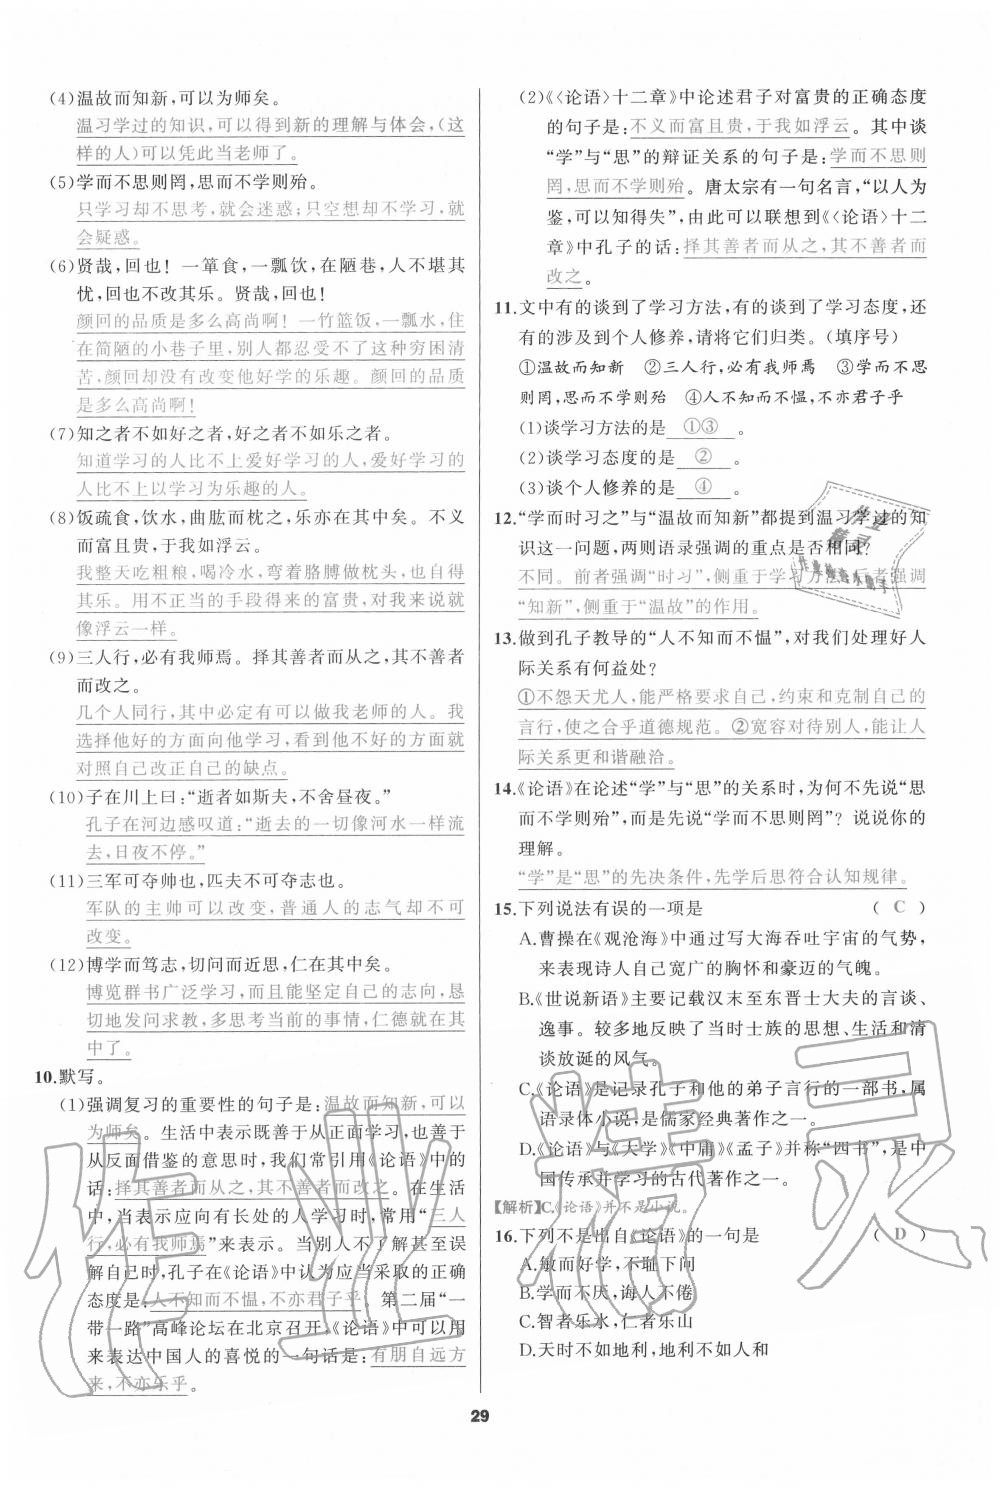 (4)温故而知新,可以为师矣。
温习学过的知识,可以得到新的理解与体会,(这
样的人)可以凭此当老师了。
(5)学而不思则罔,思而不学则殆。
只学习却不思考,就会迷惑;只空想却不学习,就
会疑惑。
(6)贤哉,回也!一箪食,一瓢饮,在陋巷,人不堪其
忧,回也不改其乐。贤哉,回也!
颜回的品质是多么高尚啊!一竹篮饭,一瓢水,住
在简陋的小巷子里,别人都忍受不了这种穷困清
苦,颜回却没有改变他好学的乐趣。颜回的品质
是多么高尚啊!
(7)知之者不如好之者,好之者不如乐之者。
知道学习的人比不上爱好学习的人,爱好学习的
人比不上以学习为乐趣的人。
(8)饭疏食,饮水,曲肱而枕之,乐亦在其中矣。不义
而富且贵,于我如浮云。
我整天吃粗粮,喝冷水,弯着胳膊做枕头,也自得
其乐。用不正当的手段得来的富贵,对我来说就
像浮云一样。
(9)三人行,必有我师焉。择其善者而从之,其不善者
而改之。
几个人同行,其中必定有可以做我老师的人。我
选择他好的方面向他学习,看到他不好的方面就
对照自己改正自己的缺点。
(10)子在川上曰:“逝者如斯夫,不舍昼夜。”
孔子在河边感叹道:“逝去的一切像河水一样流
去,日夜不停。”
(11)三军可夺帅也,匹夫不可夺志也。
军队的主帅可以改变,普通人的志气却不可
改变。
(12)博学而笃志,切问而近思,仁在其中矣。
博览群书广泛学习,而且能坚定自己的志向,恳
切地发问求教,多思考当前的事情,仁德就在其
中了。
10.默写。
(1)强调复习的重要性的句子是:温故而知新,可以
为师矣。生活中表示既善于从正面学习,也善于
从反面借鉴的意思时,我们常引用《论语》中的
话:择其善者而从之,其不善者而改之。在生活
中,当表示应向有长处的人学习时,常用“三人
行,必有我师焉”来表示。当别人不了解甚至误
解自己时,孔子在《论语》中认为应当采取的正确
态度是:人不知而不愠,不亦君子乎。第二届“一
带一路”高峰论坛在北京召开,《论语》中可以用
来表达中国人的喜悦的一句话是:有朋自远方
来,不亦乐乎。
(2)《〈论语〉十二章》中论述君子对富贵的正确态度
的句子是:不义而富且贵,于我如浮云。其中谈
“学”与“思”的辩证关系的句子是:学而不思则
罔,思而不学则殆。唐太宗有一句名言,“以人为
鉴,可以知得失”,由此可以联想到《〈论语〉十二
章》中孔子的话:择其善者而从之,其不善者而
改之。
11.文中有的谈到了学习方法,有的谈到了学习态度,还
有的涉及到个人修养,请将它们归类。(填序号)
①温故而知新 ②三人行,必有我师焉 ③学而不思
则罔,思而不学则殆 ④人不知而不愠,不亦君子乎
(1)谈学习方法的是 ①③ 。
(2)谈学习态度的是 ② 。
(3)谈个人修养的是 ④ 。
12.“学而时习之”与“温故而知新”都提到温习学过的知
识这一问题,两则语录强调的重点是否相同?
不同。前者强调“时习”,侧重于学习方法;后者强调
“知新”,侧重于“温故”的作用。
13.做到孔子教导的“人不知而不愠”,对我们处理好人
际关系有何益处?
①不怨天尤人,能严格要求自己,约束和克制自己的
言行,使之合乎道德规范。②宽容对待别人,能让人
际关系更和谐融洽。
14.《论语》在论述“学”与“思”的关系时,为何不先说“思
而不学则殆”,而是先说“学而不思则罔”?说说你的
理解。
“学”是“思”的先决条件,先学后思符合认知规律。
15.下列说法有误的一项是 ( C )
A.曹操在《观沧海》中通过写大海吞吐宇宙的气势,
来表现诗人自己宽广的胸怀和豪迈的气魄。
B.《世说新语》主要记载汉末至东晋士大夫的言谈、
逸事。较多地反映了当时士族的思想、生活和清
谈放诞的风气。
C.《论语》是记录孔子和他的弟子言行的一部书,属
语录体小说,是儒家经典著作之一。
D.《论语》与《大学》《中庸》《孟子》并称“四书”,是中
国传承并学习的古代著作之一。
【解析】C.《论语》并不是小说。
16.下列不是出自《论语》的一句是 ( D )
A.敏而好学,不耻下问
B.学而不厌,诲人不倦
C.智者乐水,仁者乐山
D.天时不如地利,地利不如人和
29
作业精灵